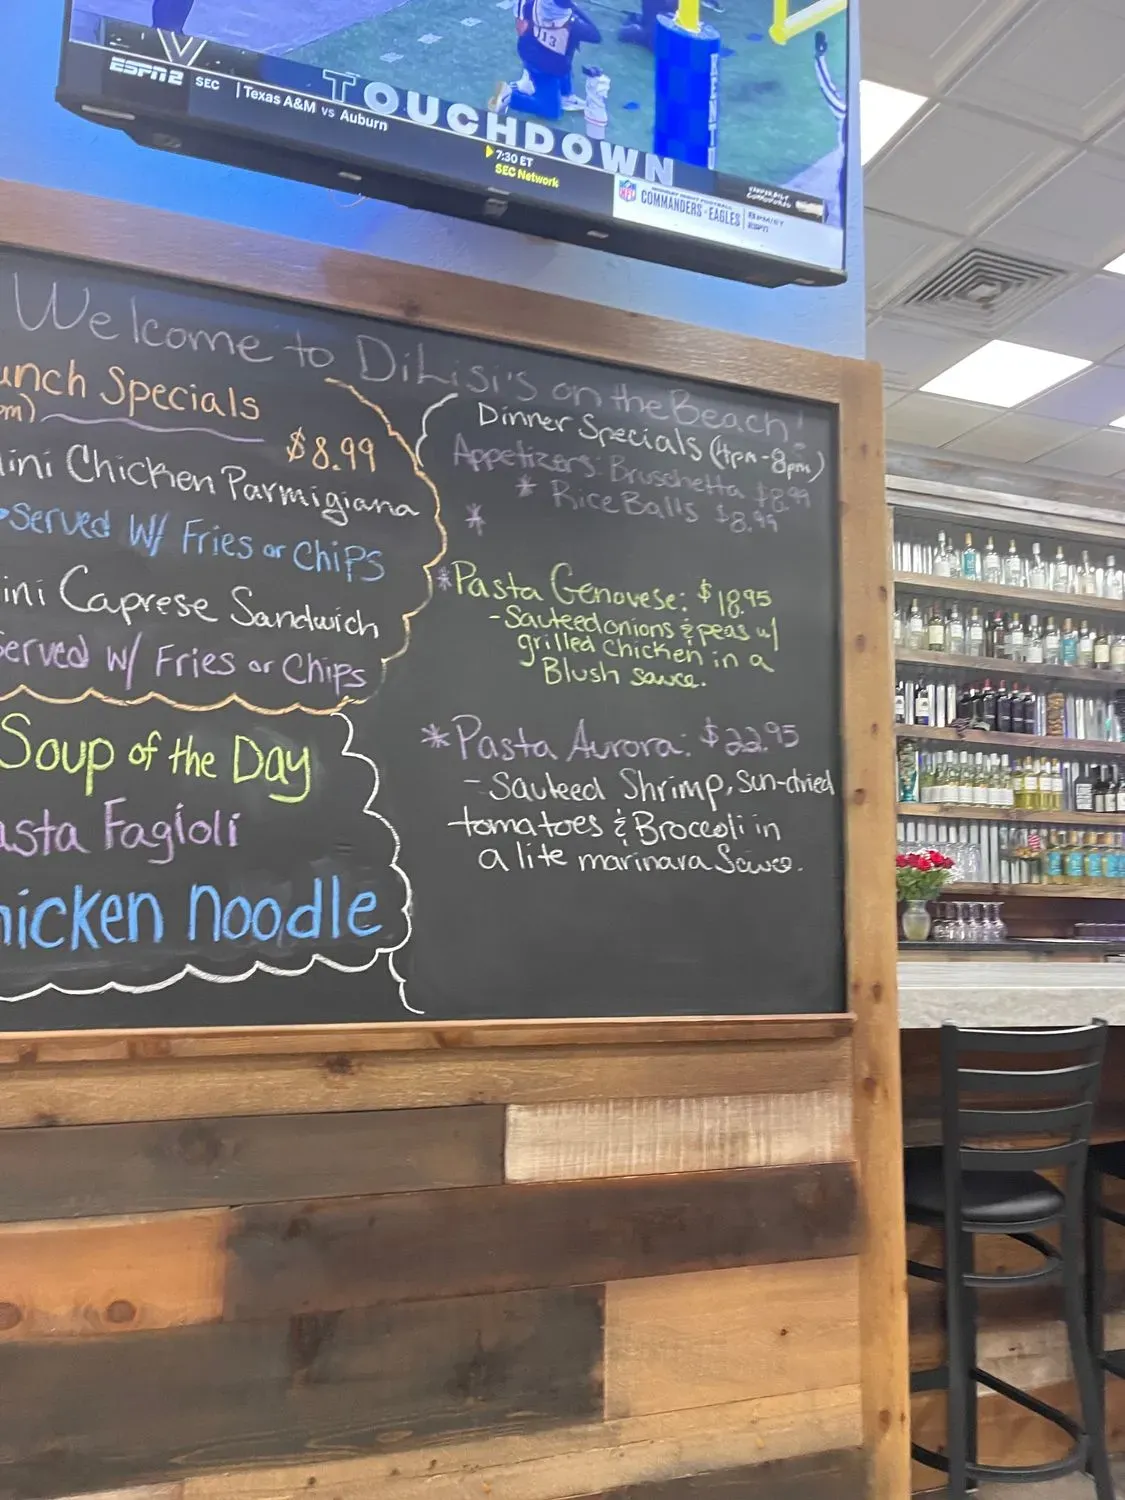 13
ESPN2 SEC | Texas A&M vs Auburn
TOUCHDOWN
7:30 ET
SEC Network
NFL
COMMANDERS - EAGLES
8PM/ET
ESPN
Welcome to DiLisi's on the Beach!
unch Specials
pm)
$8.99
ini Chicken Parmigiana
Served W/ Fries or Chips
ini Caprese Sandwich
Served W/ Fries or Chips
Soup of the Day
asta Fagioli
hicken noodle
Dinner Specials (4pm-8pm)
Appetizers: Bruschetta $8.99
* Rice Balls $8.99
*
*Pasta Genovese: $18.95
- Sauteed onions & peas w/
grilled chicken in a
Blush sauce.
*Pasta Aurora: $22.95
- Sauteed Shrimp, sun-dried
tomatoes & Broccoli in
a lite marinara Sauce.